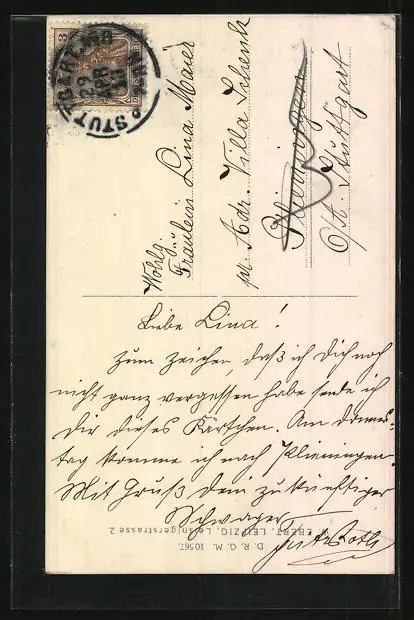 STUTTGART
29 APR
3
Wohlg.
Fräulein Lina Maier
pr. Adr. Villa Schenk
Plieningen
O/A. Stuttgart
Liebe Lina!
Zum Zeichen, daß ich Dich noch
nicht ganz vergessen habe sende ich
Dir dieses Kärtchen. Am Donners-
tag komme ich nach Plieningen.
Mit Gruß Dein zukünftiger
Schwager
D. R. G. M. 10567.
EBERT, LEIPZIG, Leisnigerstrasse 2